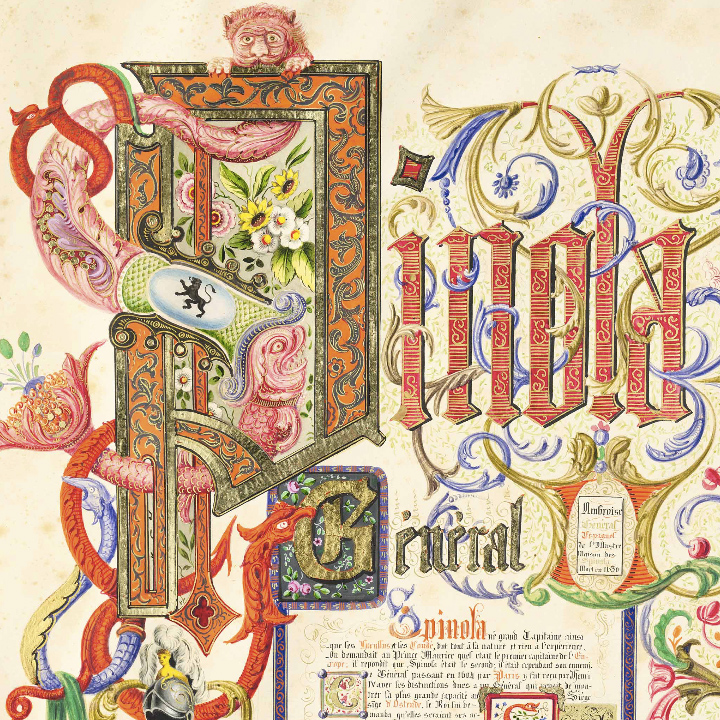 Spinola
Général
Ambroise
Général
Espagnol
de l'Illustre
Maison des
Mort en 1630
Spinola né grand Capitaine ainsi
que les Lucullus et les Condé, dut tout à la nature et rien à l'expérience.
On demandait au Prince Maurice quel était le premier capitaine de l'Eu-
rope, il répondit que Spinola était le second; il était cependant son ennemi.
Ce Général passant en 1604 par Paris y fut reçu par Henri
IV avec les distinctions dues à un Général qui avait de mon-
trer la plus grande capacité au Siège
d'Ostende, le Roi lui de-
manda qu'elles seraient ses